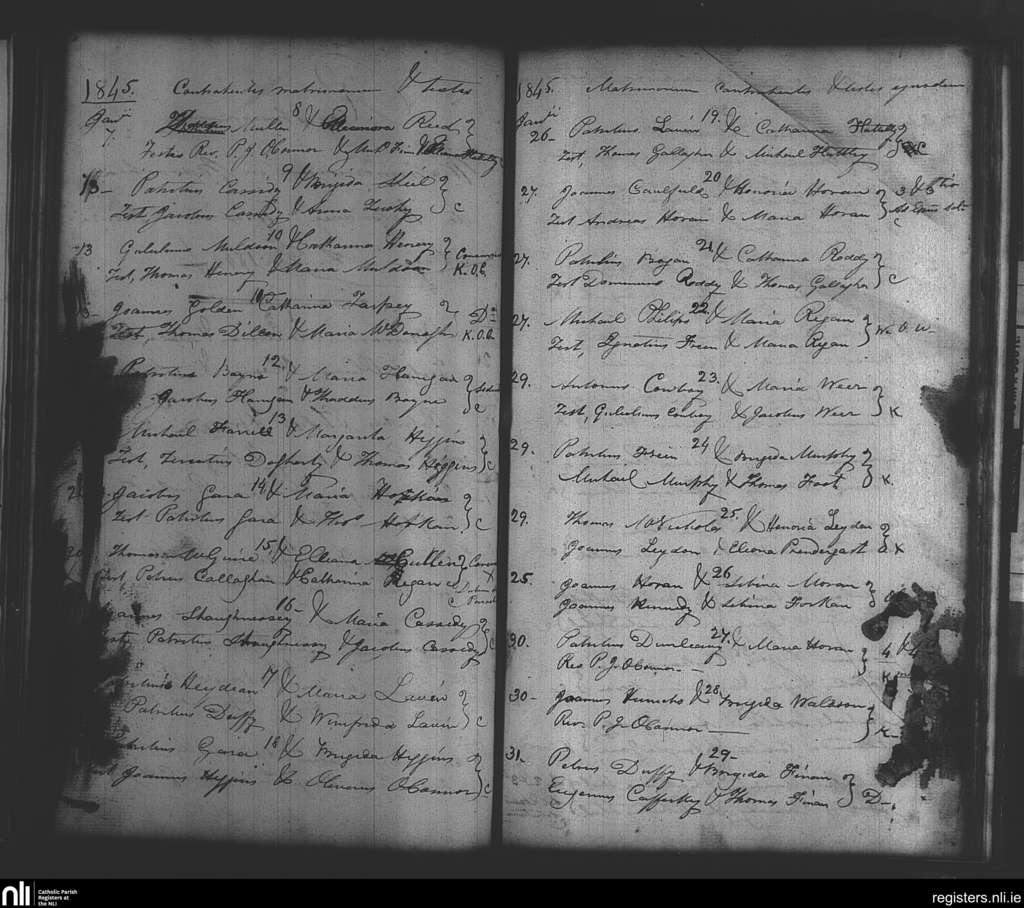 1845. Contrahentes matrimonium & testes
Jan
7 Thaddeus Mullen 8 & Eleanora Reid
Testes Rev. P. J. O'Connor &
13 - Patritius Cassidy 9 & Brigida Sheil
Test, Jacobus Cassidy & Anna C
13 Gulielmus Muldoon 10 & Catharina Henery
Test, Thomas Henery & Maria Muldoon K. O. C.
Joannes Golden Catharina Tarpey D
Test, Thomas Dillon & Maria McDonagh K. O. C.
Patritius Boyne 12. & Maria Flanigan
Jacobus Flanigan & Thaddeus Boyne C
Michael Farrell 13 & Margarita Higgins
Test, Dogherty & Thomas Higgins C
Jacobus Gara 14 & Maria Horkan
Test Patritius Gara & Thos Horkan C
Thomas McGuire 15, & Elleana Cullen
Test, Petrus Callaghan & Catharina Regan
Shaughnessy 16- & Maria Cassidy
Patritius Shaughnessy & Jacobus Cassidy C
Heydian 17 & Maria Lavin
Patritius Duffy & Winifrida Lavin C
Patritius Gara 18 & Brigida Higgins
Test Joannes Higgins & Oliverus O'Connor C
1845. Matrimonium contrahentes & testes ejusdem
Jan
26- Patritius Lavin 19. & Catharina Flattelly
Test, Thomas Gallagher & Michael Flattley C
27 Joannes Caulfield 20 & Honoria Horan 3 & 3
Test Andreas Horan & Maria Horan C
27. Patritius Bogan 21. & Catharina Roddy
Test Dominicus Roddy & Thomas Gallagher C
27. Michael Philips 22. & Maria Regan
Test, Ignatius Freen & Maria Regan
29. Antonius Conboy 23. & Maria Weer
Test, Gulielmus Conboy & Jacobus Weer K
29. Patritius Freen 24 & Brigida Murphy
Michael Murphy & Thomas Foot K
29. Thomas McNichola 25. & Honoria Leydon
Joannes Leydon & Eleona Prendergast K
25. Joannes Horan & 26 Sibina Moran
Joannes Kennedy & Sibina Horkan
30. Patritius Dunleavy 27. & Maria Horan 4 & 4
Rev P. J. O'Connor - K
30 - Joannes & 28 Brigida Waldron
Rev. P. J. O'Connor K
31. Petrus Duffy 29- & Brigida Finan
Eugenius Cafferkey & Thomas Finan D-
nli
Catholic Parish
Registers at
the NLI
registers.nli.ie